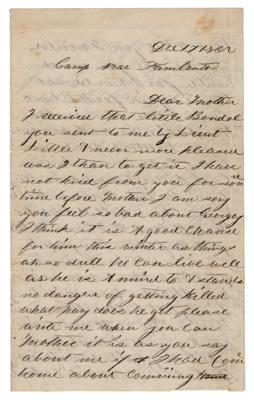 Dec 17 1862
Camp near
Dear Mother
I received that little Bondol
you sent to me by Lieut
Little I never wore pleased
was I than to get it I have
not hird from you for som
time before Mother I am sory
you feel so bad about Georgy
I think it is A good Chance
for him this winter as things
ar so dull he can live well
as he is A mind to & stands
no danger of getting killed
what pay does he get please
write me when you can
Mother it is as you say
about me if I had Com
home about comining home